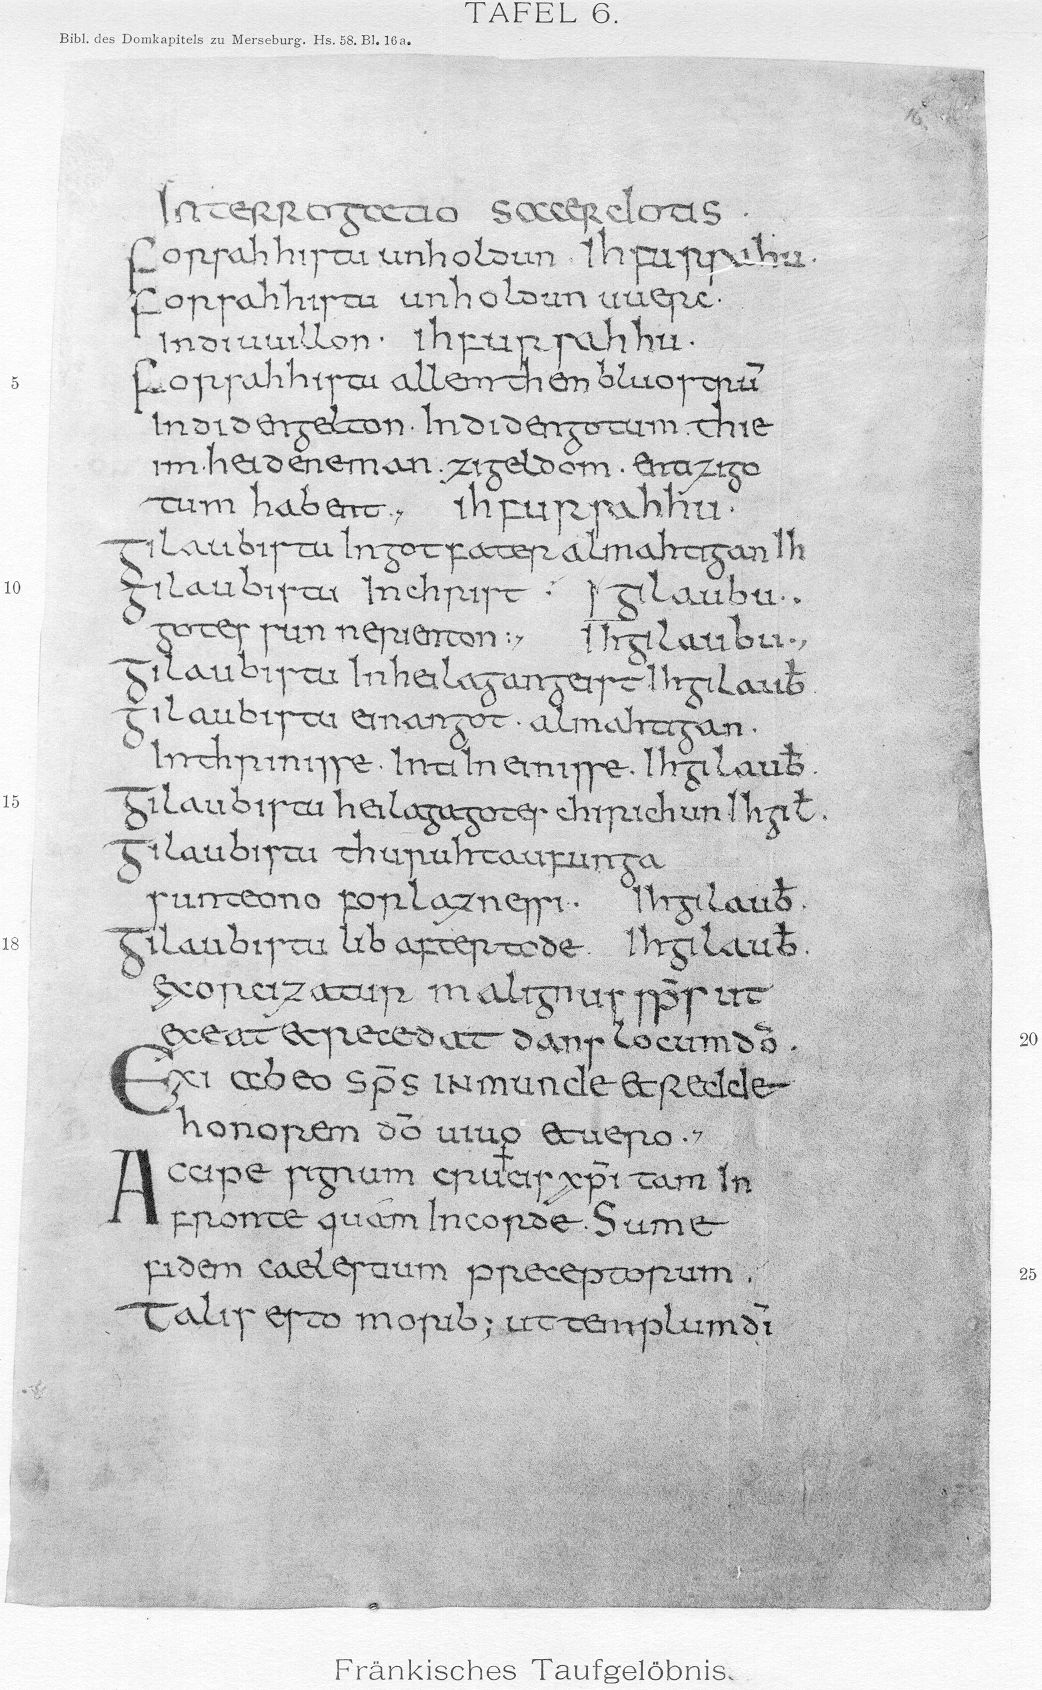 TAFEL 6.
Bibl. des Domkapitels zu Merseburg. Hs. 58. Bl. 16a.
Interrogatio sacerdotis.
Forsahhistu unholdun. Ih fursahu.
Forsahhistu unholdun uuerc.
indiuuillon. ihfursahhu.
5 Forsahhistu allem them bluostrū
Indi den gelton. Indi den gotum. thie
im. heidene man. zigeldom. enti zigo
tum habent., ihfursahhu.
Gilaubistu In got fater almahtigan Ih
10 Gilaubistu In christ gilaubu.
gotes sun nerienton:, Ihgilaubu.,
Gilaubistu In heilagan geist Ihgilaub̄.
Gilaubistu einan got. almahtigan.
In thrinisse. Inti In einisse. Ihgilaub̄.
15 Gilaubistu heilaga gotes chirichun Ihgil̄.
Gilaubistu thuruh taufunga
sunteono forlaznessi. Ihgilaub̄.
18 Gilaubistu lib after tode. Ihgilaub̄.
exorcizatur malignus sps̄ ut
exeat et recedat dans locum dō. 20
Exi ab eo sp̄s inmunde et redde
honorem dō uiuo et uero.,
Accipe signum crucis xp̄i tam In
fronte quam In corde. Sume
fidem caelestium preceptorum. 25
Talis esto morib; ut templum dī
Fränkisches Taufgelöbnis.